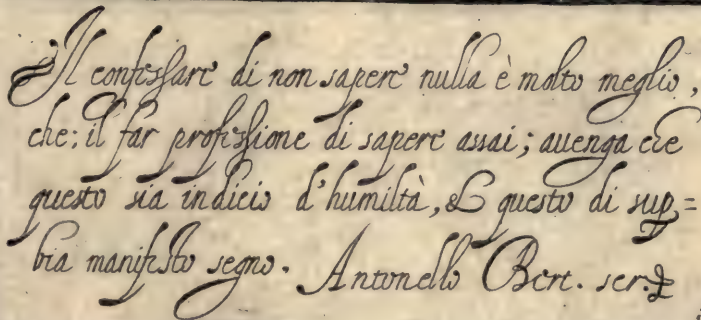 Il confessare di non sapere nulla è molto meglio,
che: il far professione di sapere assai; auenga che
questo sia indicio d'humiltà, & questo di sup=
bia manifesto segno. Antonello Bert. scr.